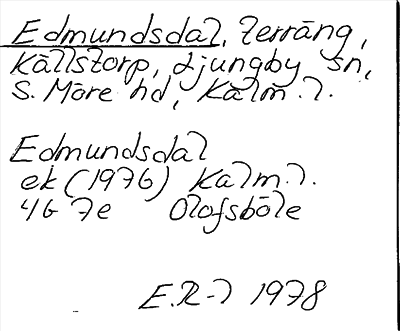 Edmundsdal, terräng,
Källstorp, Ljungby sn,
S. Möre hd, Kalm. l.
Edmundsdal
ek (1976) Kalm. l.
4G 7e Olofsböle
E.R-l 1978